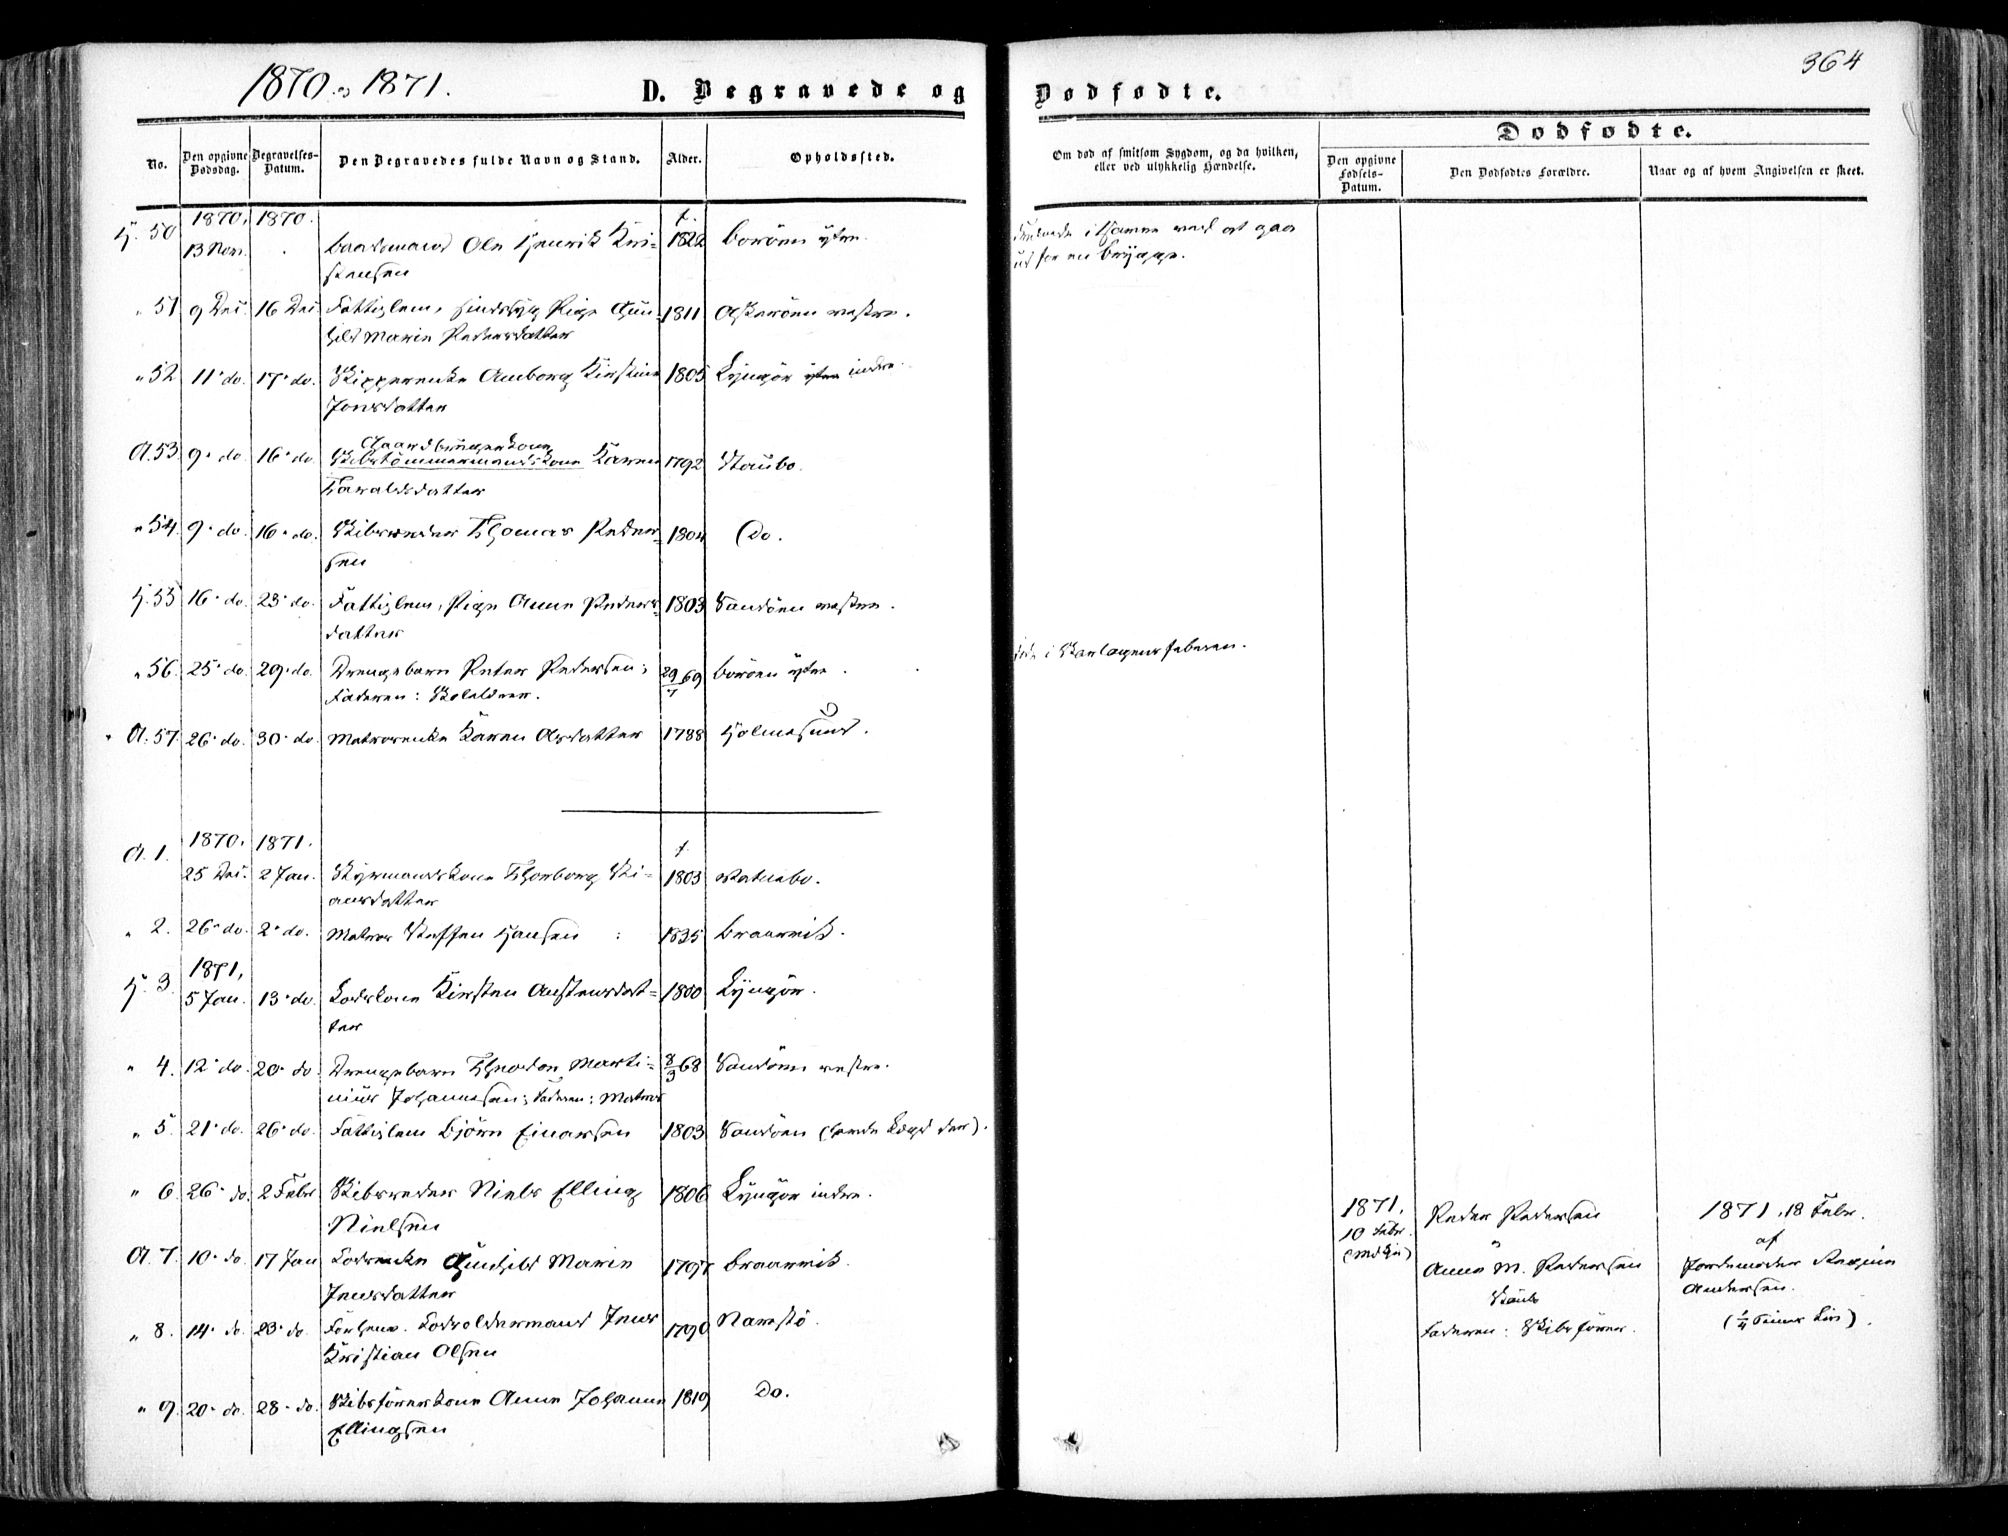 1870 og 1871.
D. Begravede og
Dødfødte.
364
No.
Den opgivne Dødsdag.
Begravelses-Datum.
Den Begravedes fulde Navn og Stand.
Alder.
Opholdssted.
Om død af smitsom Sygdom, og da hvilken,
eller ved ulykkelig Hændelse.
Dødfødte.
Den opgivne Fødsels-Datum.
Den Dødfødtes Forældre.
Naar og af hvem Angivelsen er skeet.
1870, 1870. f.
H. 50 13 Nov. Baadsmand Ole Henrik Kri- 1822 Borøen ytre.
stensen
druknede i Havnen ved at gaa
ud for en Brygge.
" 51 9 Dec. 16 Dec Fattiglem, sindssyg Pige Gun- 1811 Askerøen vestre.
hild Marie Pedersdatter
" 52 11 do. 17 do. Skipperenke Anborg Kirstine 1805 Lyngør ytre indre.
Jonsdatter
Gaardbrugerkone
A. 53 9 do. 16 do. Skibstømmermandskone Karen 1792 Staubo.
Taraldsdatter
" 54. 9 do. 16 do. Skibsreder Thomas Peder- 1804 Do.
sen
H. 55 16 do. 23 do. Fattiglem, Pige Anne Peders- 1803 Sandøen vestre.
datter
" 56. 25 do. 29 do. Drengebarn Peter Pedersen; 29/7 69 Borøen ytre.
Faderen: Skolelærer.
døde i Skarlagensfeberen.
A. 57. 26 do. 30 do. Matrosenke Karen Olsdatter 1788 Holmesund.
1870, 1871. f.
A. 1. 25 Dec. 2 Jan. Styrmandskone Thorborg Sti- 1803
ansdatter
" 2. 26 do. 2 do. Matros Steffen Hansen 1835 Braarvik.
1871,
H. 3. 5 Jan. 13 do. Lodskone Kirsten Austensdat- 1800 Lyngør.
ter
" 4. 12 do. 20 do. Drengebarn Theodor Marti- 8/3 68 Sandøen vestre.
nius Johannesen; Faderen: Matros
" 5. 21 do. 26 do. Fattiglem Bjørn Einarsen 1803 Sandøen (havde Lægd der).
" 6. 26 do. 2 Febr Skibsreder Niels Elling 1806 Lyngør indre.
Nielsen
A. 7. 10 do 17 Jan Lodsenke Gunhild Marie 1797 Braarvik.
Jensdatter
" 8. 14 do. 23 do. Forhenv. Lodsoldermand Jens 1790 Narestø.
Kristian Olsen
" 9. 20 do. 28 do. Skibsførerskone Anne Johanne 1819 Do.
Ellingsen
1871,
10 Febr.
Peder Pedersen
Anne M. Pedersen
Faderen: Skibsfører.
1871, 18 Febr.
af
Jordemoder Regine
Andersen.